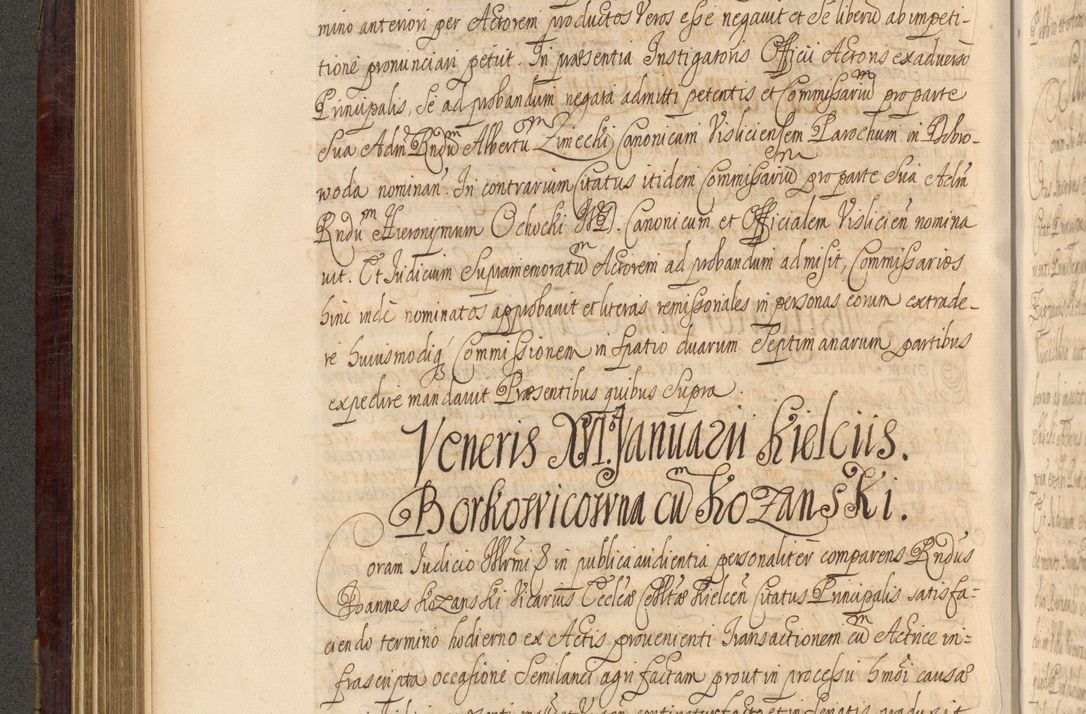 mino anteriori per Actorem productos Veros esse negavit et Se liberũ ab impeti-
tione pronunciari petiit. In præsentia Instigatoris Officii Actoris ex adverso
Principalis, Se ad probandum negata admitti petentis et Commissariũ pro parte
Sua Adm Rndũm Albertũ Zinecki Canonicum Visliciensem Parochum in Dobro-
woda nominan. In contrarium Citatus itidem Commissariũ pro parte Sua Adm
Rndũm Hieronymum Ochocki VD. Canonicum et Officialem Vislicien nomina
vit. Et Judicium Supramemoratũ Actorem ad probandum admisit, Commissarios
hinc inde nominatos approbavit et literas remissoriales in personas eorum extrade-
re huiusmodiq Commissionem in spatio duarum Septimanarum partibus
expedire mandavit Præsentibus quibus Supra
Veneris XVI. Januarii Kielciis.
Borkowicowna cũ Kozanski.
Coram Judicio Illrmi &c in publica audientia personaliter comparens Rndus
Joannes Kozanski Vicarius Eccleæ Colltæ Kielcen Citatus Principalis satisfa-
ciendo termino hodierno ex Actis provenienti Transactionem cũ Actrice in-
frascripta occasione Semilanei agri factam prout in processu hmoi causæ